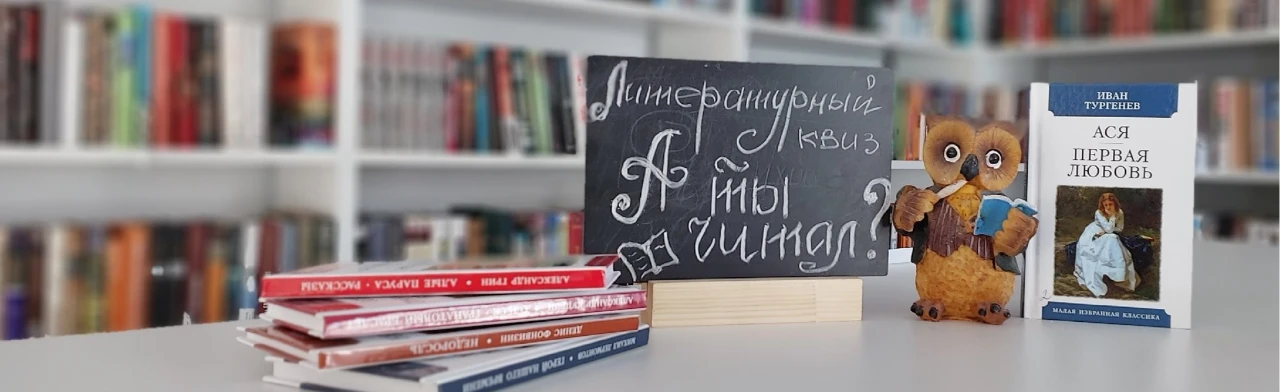 Литературный
квиз
А ты
читал?
ИВАН
ТУРГЕНЕВ
АСЯ
ПЕРВАЯ
ЛЮБОВЬ
МАЛАЯ ИЗБРАННАЯ КЛАССИКА
АЛЕКСАНДР ГРИН • АЛЫЕ ПАРУСА • РАССКАЗЫ
АЛЕКСАНДР КУПРИН • ГРАНАТОВЫЙ БРАСЛЕТ
ДЕНИС ФОНВИЗИН • НЕДОРОСЛЬ
МИХАИЛ ЛЕРМОНТОВ • ГЕРОЙ НАШЕГО ВРЕМЕНИ